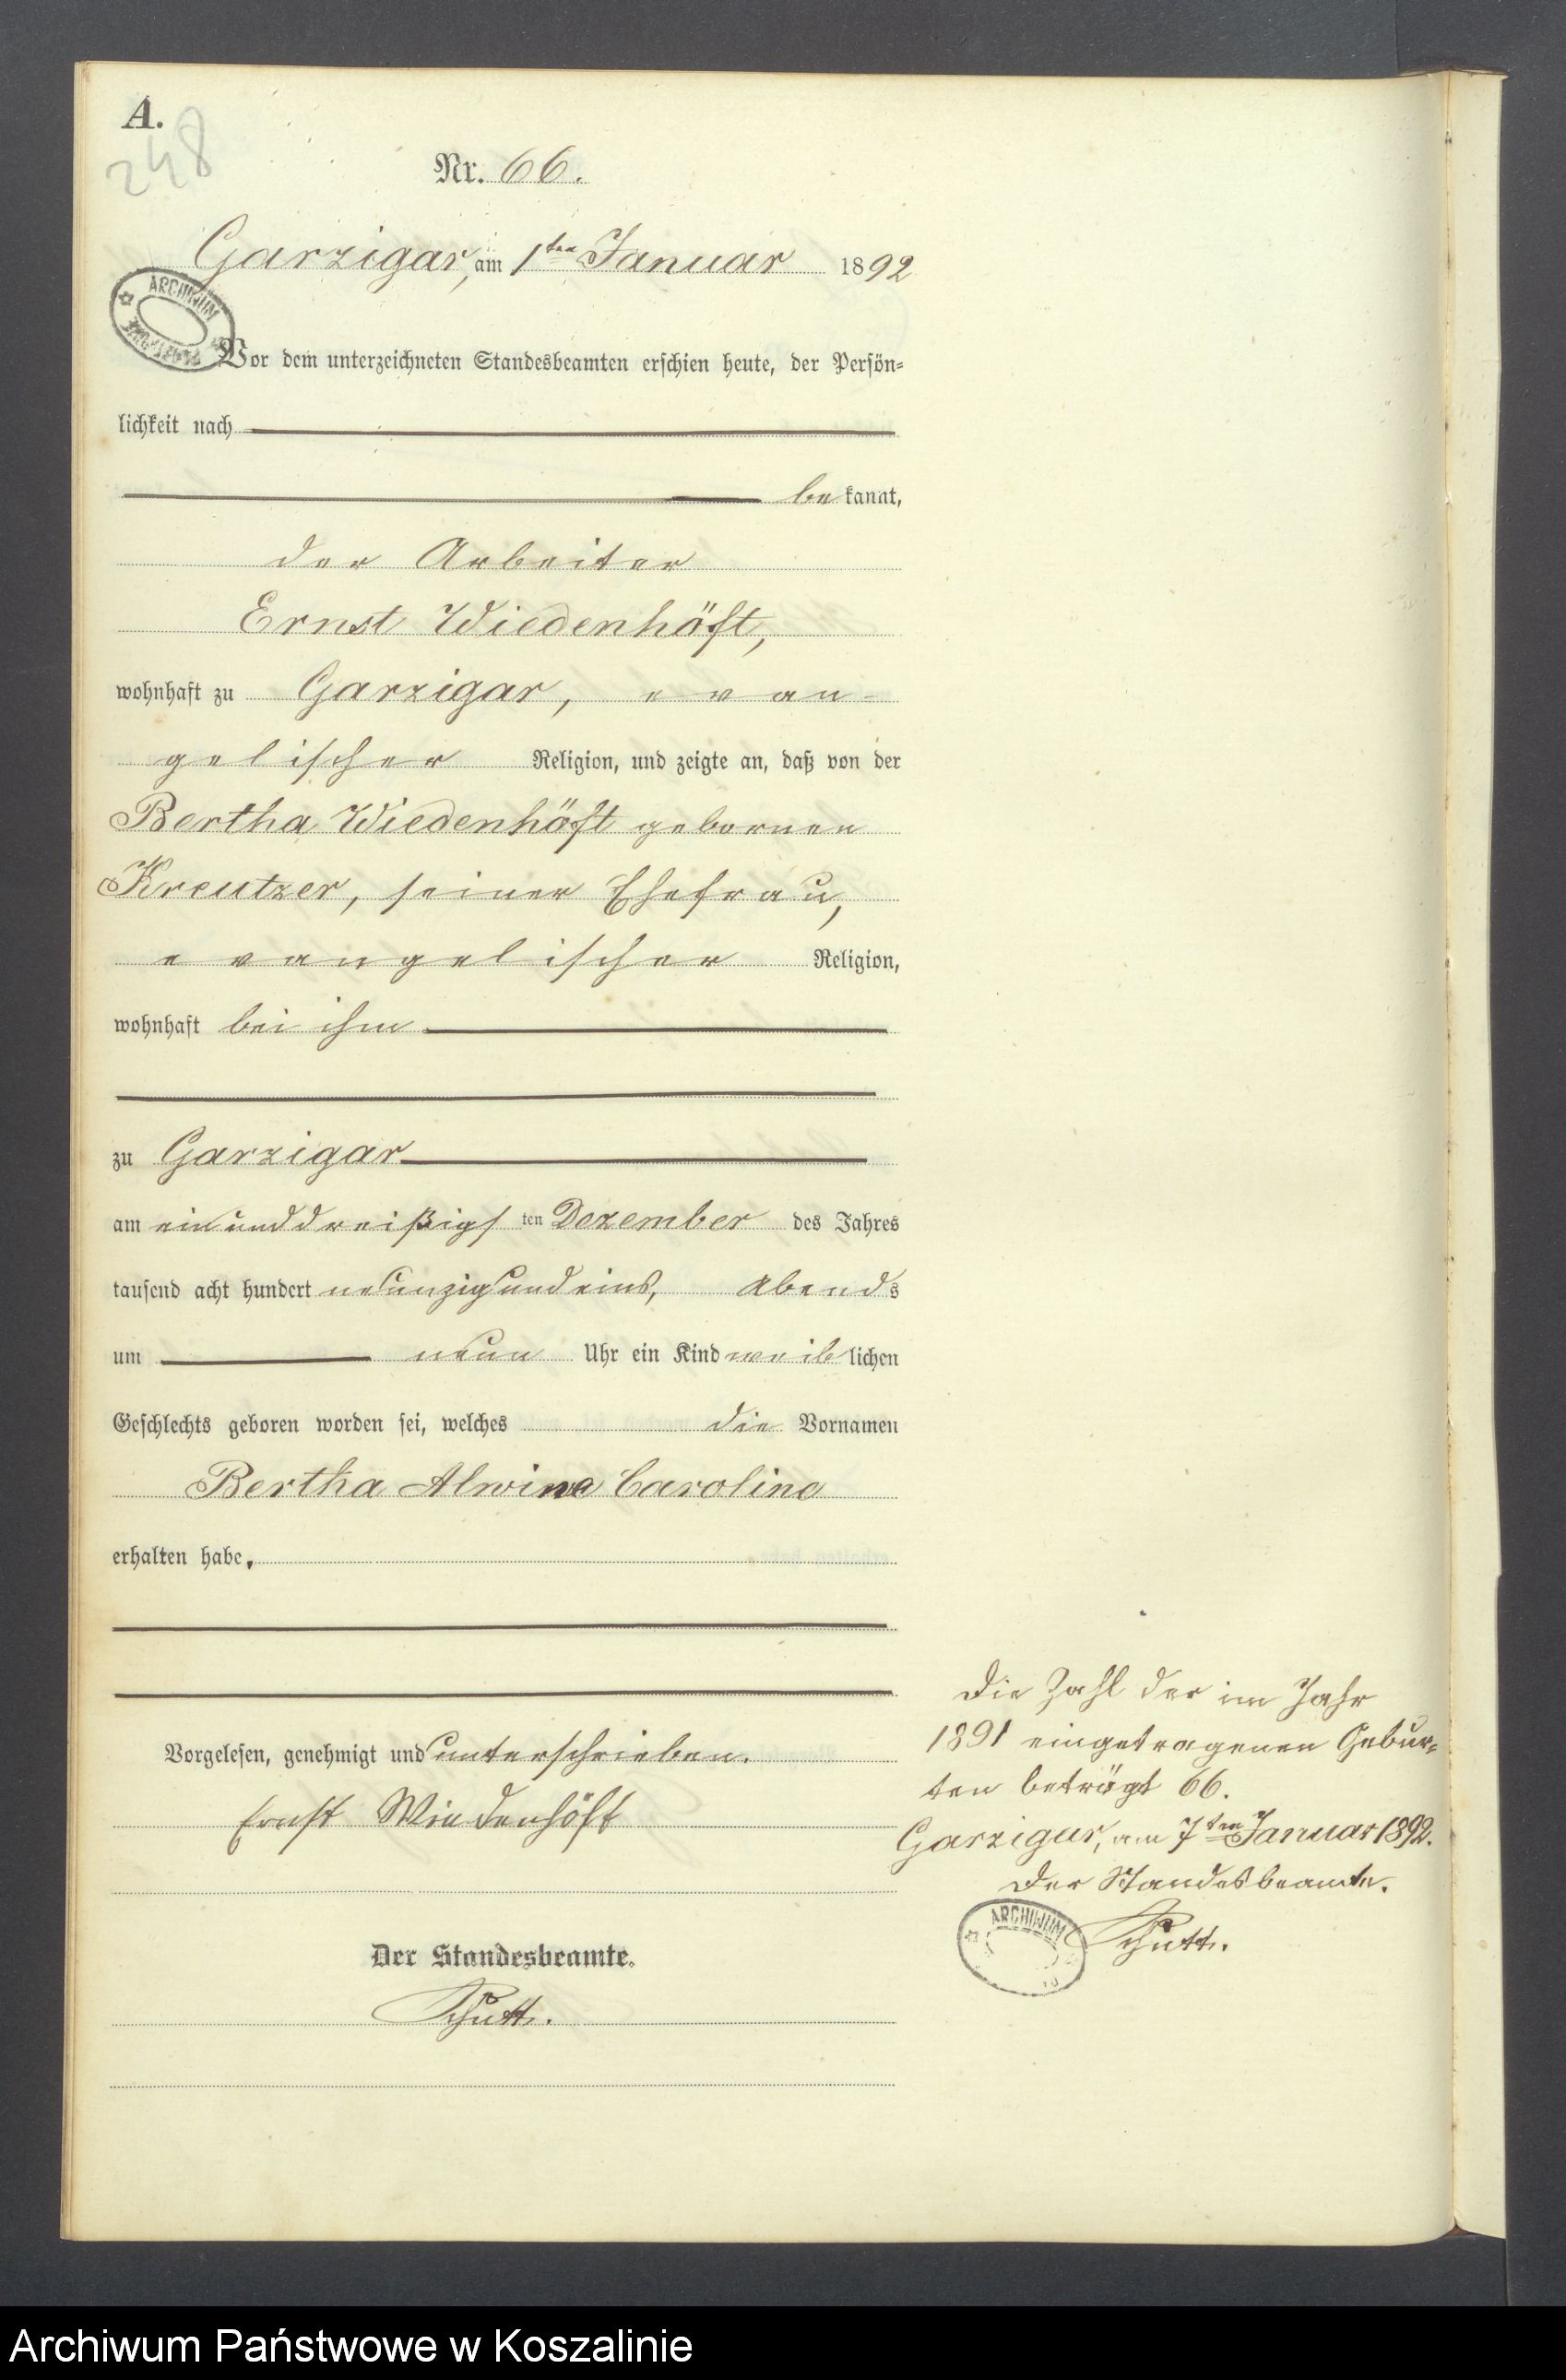 A.
248
Nr. 66.
Garzigar, am 1ten Januar 1892
ARCHIWUM
Vor dem unterzeichneten Standesbeamten erschien heute, der Persön-
lichkeit nach
be kannt,
der Arbeiter
Ernst Wiedenhöft,
wohnhaft zu Garzigar, evan-
gelischer Religion, und zeigte an, daß von der
Bertha Wiedenhöft gebornen
Kreutzer, seiner Ehefrau,
evangelischer Religion,
wohnhaft bei ihm
zu Garzigar
am einunddreißigs ten Dezember des Jahres
tausend acht hundert neunzigundeins, Abends
um neun Uhr ein Kind weib lichen
Geschlechts geboren worden sei, welches die Vornamen
Bertha Alwine Caroline
erhalten habe.
Vorgelesen, genehmigt und unterschrieben.
Ernst Wiedenhöft
Der Standesbeamte.
Schutt.
Die Zahl der im Jahr
1891 eingetragenen Gebur-
ten beträgt 66.
Garzigar, am 7ten Januar 1892.
Der Standesbeamte.
ARCHIWUM
Schutt.
Archiwum Państwowe w Koszalinie